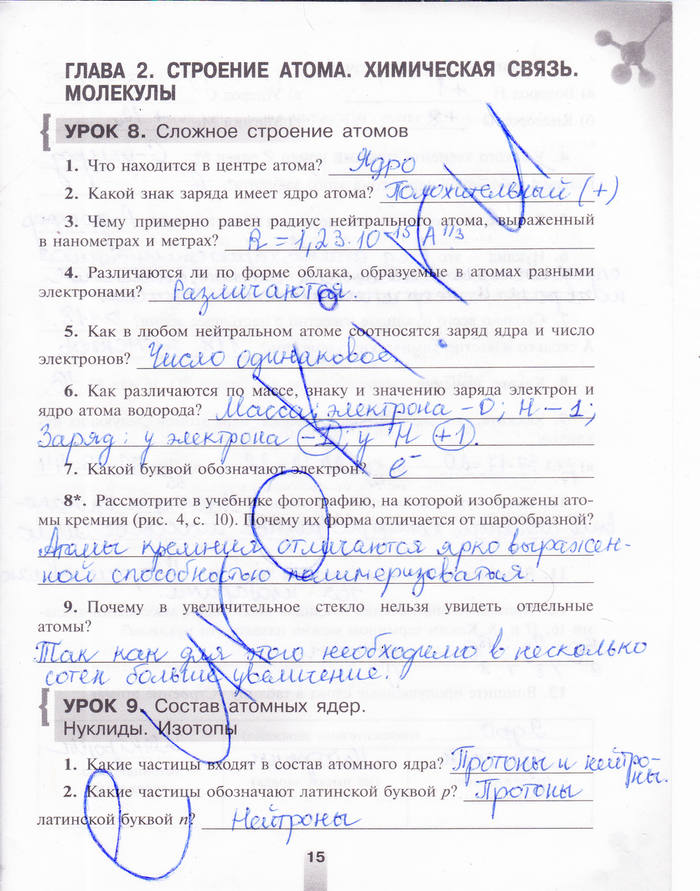 ГЛАВА 2. СТРОЕНИЕ АТОМА. ХИМИЧЕСКАЯ СВЯЗЬ.
МОЛЕКУЛЫ
УРОК 8. Сложное строение атомов
1. Что находится в центре атома? Ядро
2. Какой знак заряда имеет ядро атома? Положительный (+)
3. Чему примерно равен радиус нейтрального атома, выраженный
в нанометрах и метрах? R = 1,23·10⁻¹⁵ A^1/3
4. Различаются ли по форме облака, образуемые в атомах разными
электронами? Различаются.
5. Как в любом нейтральном атоме соотносятся заряд ядра и число
электронов? Число одинаковое.
6. Как различаются по массе, знаку и значению заряда электрон и
ядро атома водорода? Масса: электрона -0; Н - 1;
Заряд: у электрона -1; у Н +1.
7. Какой буквой обозначают электрон? e⁻
8*. Рассмотрите в учебнике фотографию, на которой изображены ато-
мы кремния (рис. 4, с. 10). Почему их форма отличается от шарообразной?
Атомы кремния отличаются ярко выражен-
ной способностью полимеризоваться
9. Почему в увеличительное стекло нельзя увидеть отдельные
атомы?
Так как для этого необходимо в несколько
сотен больше увеличение.
УРОК 9. Состав атомных ядер.
Нуклиды. Изотопы
1. Какие частицы входят в состав атомного ядра? Протоны и нейтро-
ны.
2. Какие частицы обозначают латинской буквой p? Протоны
латинской буквой n? Нейтроны
15